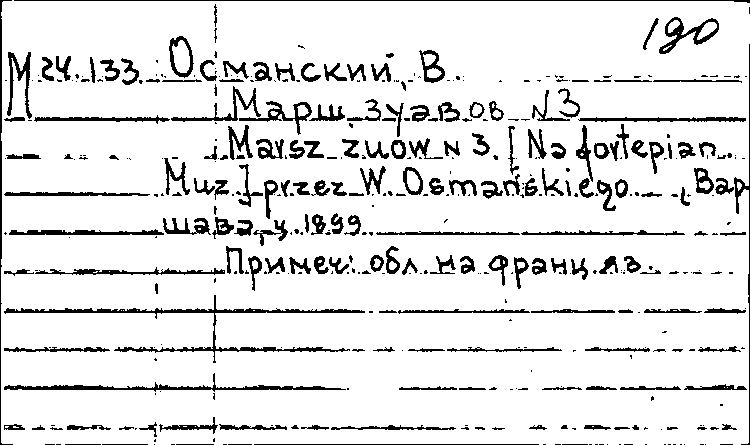 190
М 24.133 Османский, В.
Марш зуавов N 3
Marsz żuów N 3. [Na fortepian.
Muz] przez W. Osmańskiego. Вар-
шава, ц. 1899
Примеч: обл. на франц. яз.